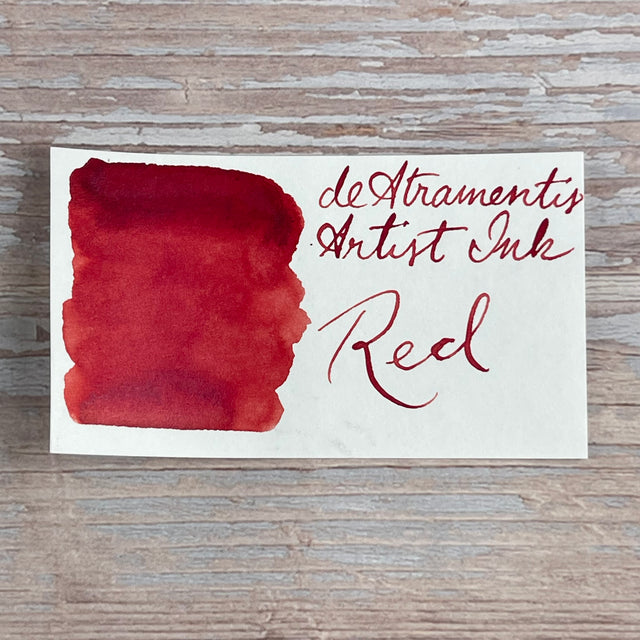 deAtramentis
Artist Ink
Red